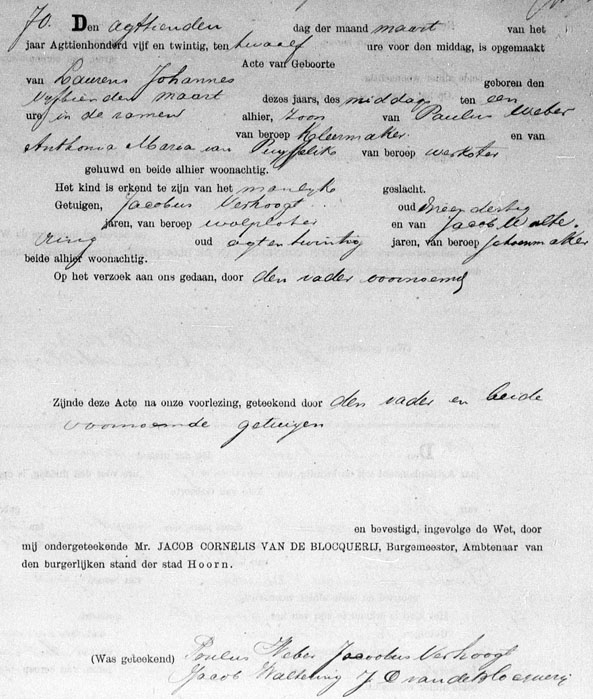 70. Den agttienden dag der maand maart van het
jaar Agttienhonderd vijf en twintig, ten twaalf ure voor den middag, is opgemaakt
Acte van Geboorte
van Laurens Johannes geboren den
vijftienden maart dezes jaars, des middags ten een
ure in de ramen alhier, zoon van Paulus Weber
van beroep Kleermaker en van
Anthonia Maria van van beroep werkster
gehuwd en beide alhier woonachtig.
Het kind is erkend te zijn van het manlyk geslacht.
Getuigen, Jacobus Verhoogt oud dertig
jaren, van beroep wolploter en van Jacob Walte-
ring oud agt en twintig jaren, van beroep schoenmaker
beide alhier woonachtig.
Op het verzoek aan ons gedaan, door den vader voornoemd
Zijnde deze Acte na onze voorlezing, geteekend door den vader en beide
voornoemde getuigen
en bevestigd, ingevolge de Wet, door
mij ondergeteekende Mr. JACOB CORNELIS VAN DE BLOCQUERIJ, Burgemeester, Ambtenaar van
den burgerlijken stand der stad Hoorn.
(Was geteekend) Paulus Weber Jacobus Verhoogt
Jacob Waltering J C van de Blocquerij